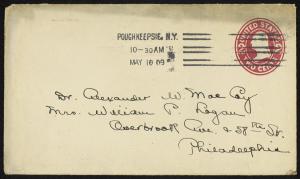 POUGHKEEPSIE, N.Y.
10-30 AM
MAY 10 09
UNITED STATES
TWO CENTS
Dr. Alexander W. Mac Coy
Mrs. William P. Logan
Overbrook Ave. & 58th St.
Philadelphia